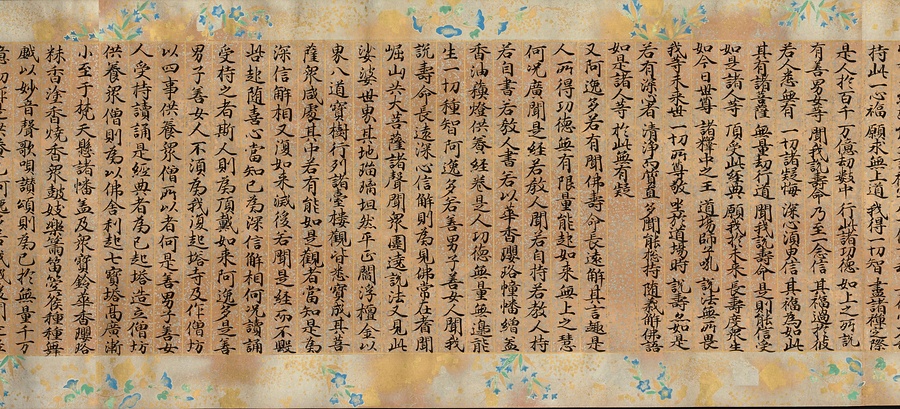 持此一心福 願求無上道 我得一切智 盡諸禪定際
是人於百千 万億劫數中 行此諸功德 如上之所說
有善男女等 聞我說壽命 乃至一念信 其福過於彼
若人悉無有 一切諸疑悔 深心須臾信 其福為如此
其有諸菩薩 無量劫行道 聞我說壽命 是則能信受
如是諸人等 頂受此經典 願我於未來 長壽度眾生
如今日世尊 諸釋中之王 道場師子吼 說法無所畏
我等未來世 一切所尊敬 坐於道場時 說壽亦如是
若有深心者 清淨而質直 多聞能總持 隨義解佛語
如是諸人等 於此無有疑
又阿逸多若有聞佛壽命長遠解其言趣是
人所得功德無有限量能起如來無上之慧
何況廣聞是經若教人聞若自持若教人持
若自書若教人書若以華香瓔珞幢幡繒蓋
香油穌燈供養經卷是人功德無量無邊能
生一切種智阿逸多若善男子善女人聞我
說壽命長遠深心信解則為見佛常在耆闍
崛山共大菩薩諸聲聞眾圍遶說法又見此
娑婆世界其地瑠璃坦然平正閻浮檀金以
界八道寶樹行列諸臺樓觀皆悉寶成其菩
薩眾咸處其中若有能如是觀者當知是為
深信解相又復如來滅後若聞是經而不毀
呰起隨喜心當知已為深信解相何況讀誦
受持之者斯人則為頂戴如來阿逸多是善
男子善女人不須為我復起塔寺及作僧坊
以四事供養眾僧所以者何是善男子善女
人受持讀誦是經典者為已起塔造立僧坊
供養眾僧則為以佛舍利起七寶塔高廣漸
小至于梵天懸諸幡蓋及眾寶鈴華香瓔珞
粖香塗香燒香眾鼓妓樂簫笛箜篌種種舞
戲以妙音聲歌唄讚頌則為已於無量千万